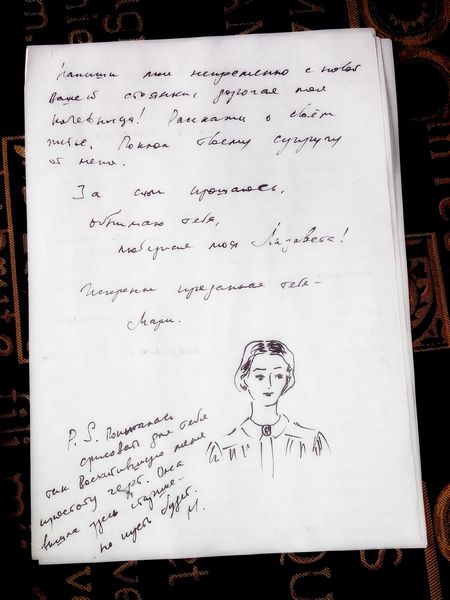 Напиши мне непременно с новой
вашей стоянки, дорогая моя
кочевница! Расскажи о своём
житье. Поклон твоему супругу
от меня.
За сим прощаюсь,
обнимаю тебя,
любимая моя Лизавета!
Искренне преданная тебе –
Мари.
P.S. Попыталась
срисовать для тебя
так восхитившую меня
простоту черт. Она
вышла здесь старше.
но пусть будет.
М.